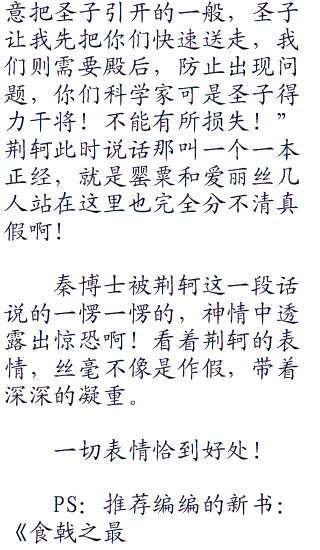 意把圣子引开的一般，圣子
让我先把你们快速送走，我
们则需要殿后，防止出现问
题，你们科学家可是圣子得
力干将！不能有所损失！”
荆轲此时说话那叫一个一本
正经，就是罂粟和爱丽丝几
人站在这里也完全分不清真
假啊！
秦博士被荆轲这一段话
说的一愣一愣的，神情中透
露出惊恐啊！看着荆轲的表
情，丝毫不像是作假，带着
深深的凝重。
一切表情恰到好处！
PS：推荐编编的新书：
《食戟之最